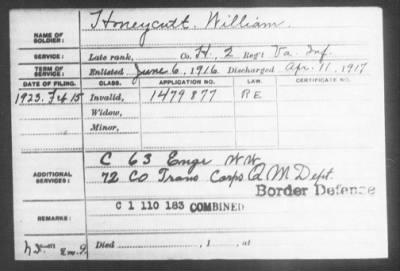 NAME OF SOLDIER: Honeycutt, William.
SERVICE: Late rank, Co. H, 2 Reg't Va. Inf.
TERM OF SERVICE: Enlisted June 6, 1916 Discharged Apr. 11, 1917
DATE OF FILING. CLASS. APPLICATION NO. LAW. CERTIFICATE NO.
1923. Feb 15 Invalid, 1479877 P.E.
Widow,
Minor,
ADDITIONAL SERVICES: C 63 Engr W.W.
72 Co Trans Corps Q M Dept.
Border Defence
REMARKS: C 1 110 183 COMBINED
Died , 1 , at